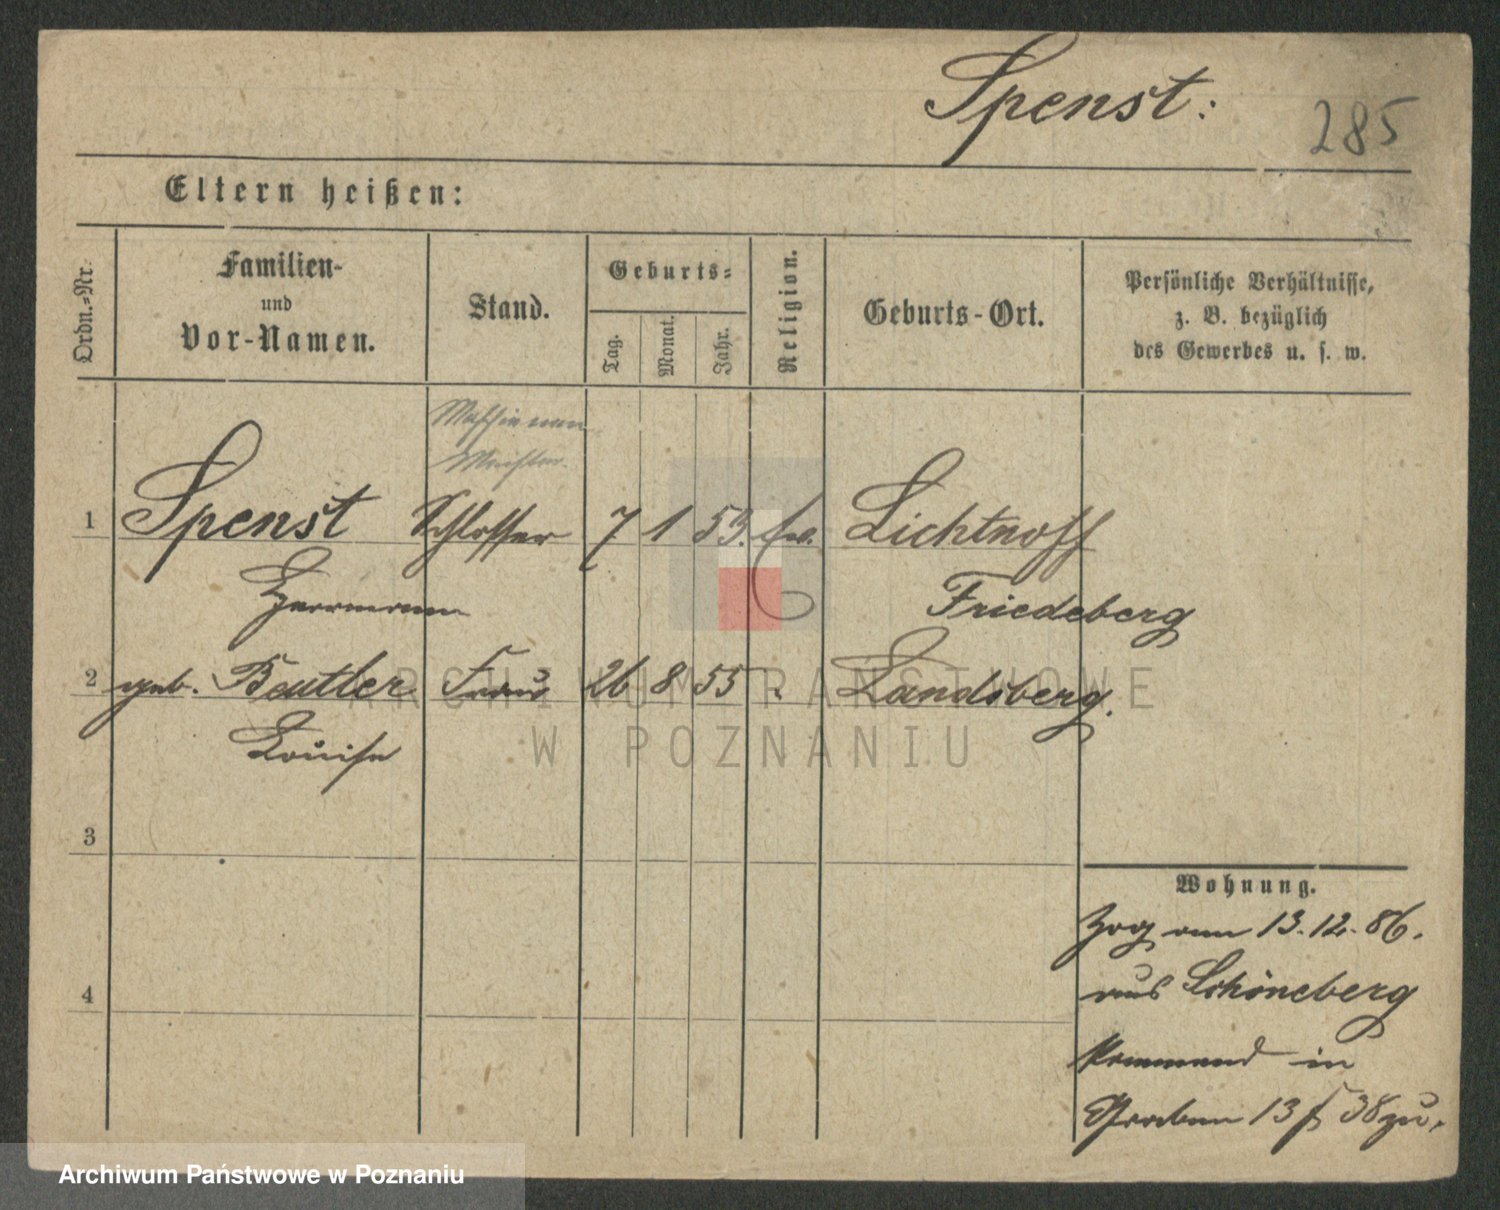 Spenst:
285
Eltern heißen:
Ordn.=Nr.
Familien-
und
Vor-Namen.
Stand.
Geburts=
Tag.
Monat.
Jahr.
Religion.
Geburts-Ort.
Persönliche Verhältnisse,
z. B. bezüglich
des Gewerbes u. s. w.
Maschinen
Meister.
1 Spenst Schlosser 7 1 53. Ev. Lichtnoff
Herrmann Friedeberg
2 geb. Beutler Frau 26 8 55 Landsberg.
Louise
3
4
Wohnung.
Zog am 13.12.86.
aus Schöneberg
kommend in
Graben 13 38 zu.
ARCHIWUM PAŃSTWOWE
W POZNANIU
Archiwum Państwowe w Poznaniu